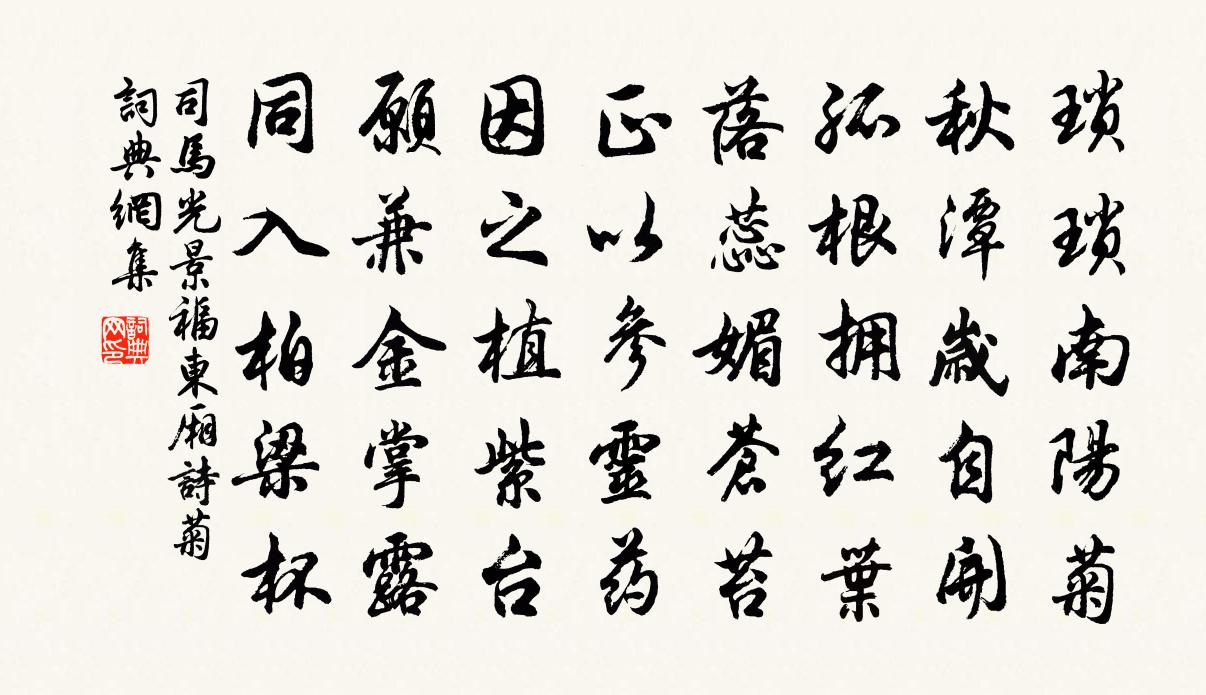 瑣瑣南陽菊
秋潭歲自開
孤根拥紅葉
落蕊媚蒼苔
正以參靈药
因之植紫台
願兼金掌露
同入柏梁杯
司馬光景福東厢詩菊
詞典網集
詞典网印